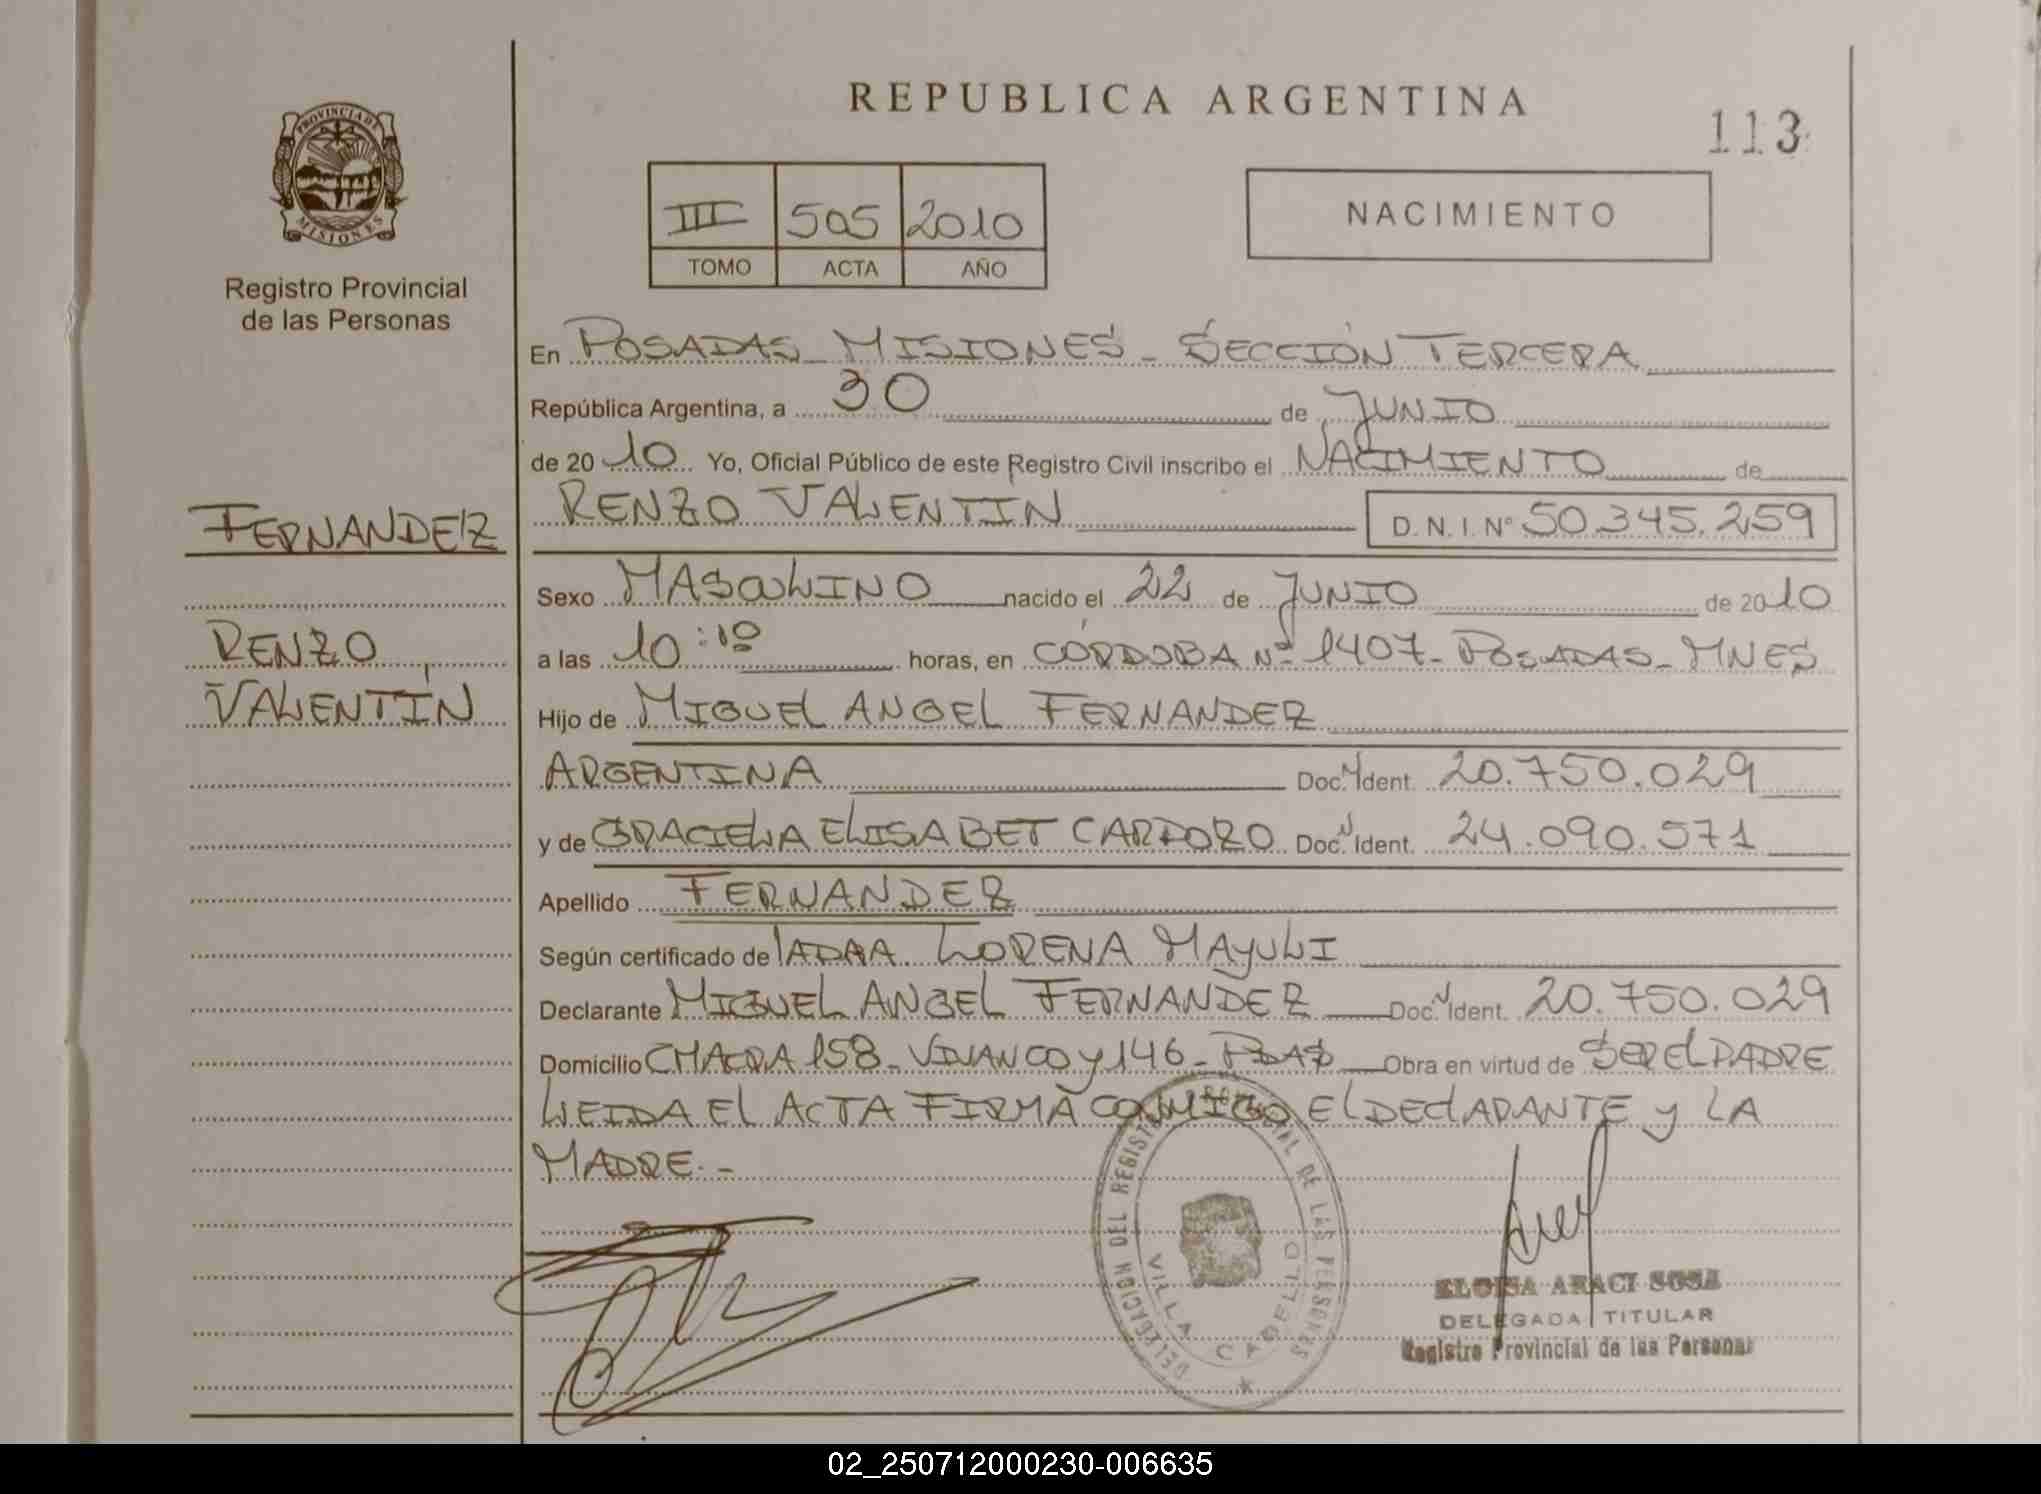 REPUBLICA ARGENTINA
113
PROVINCIA DE MISIONES
Registro Provincial
de las Personas
III 505 2010
TOMO ACTA AÑO
NACIMIENTO
En POSADAS - MISIONES - SECCIÓN TERCERA
República Argentina, a 30 de JUNIO
de 2010 Yo, Oficial Público de este Registro Civil inscribo el NACIMIENTO de
RENZO VALENTIN D.N.I. Nº 50.345.259
FERNANDEZ
RENZO
VALENTÍN
Sexo MASCULINO nacido el 22 de JUNIO de 2010
a las 10:10 horas, en CÓRDOBA Nº 1407 - POSADAS - MNES
Hijo de MIGUEL ANGEL FERNANDEZ
ARGENTINA Doc. Ident. 20.750.029
y de GRACIELA ELISABET CARDOZO Doc. Ident. 24.090.571
Apellido FERNANDEZ
Según certificado de LORENA MAYULI
Declarante MIGUEL ANGEL FERNANDEZ Doc. Ident. 20.750.029
Domicilio CHACRA 158 - VIVANCO y 146 - PDAS Obra en virtud de SER EL PADRE
LEIDA EL ACTA FIRMA CONMIGO EL DECLARANTE y LA
MADRE.-
DELEGACION DEL REGISTRO PROVINCIAL DE LAS PERSONAS
VILLA CABELLO
ELOISA ARACI SOSA
DELEGADA TITULAR
Registro Provincial de las Personas
02_250712000230-006635